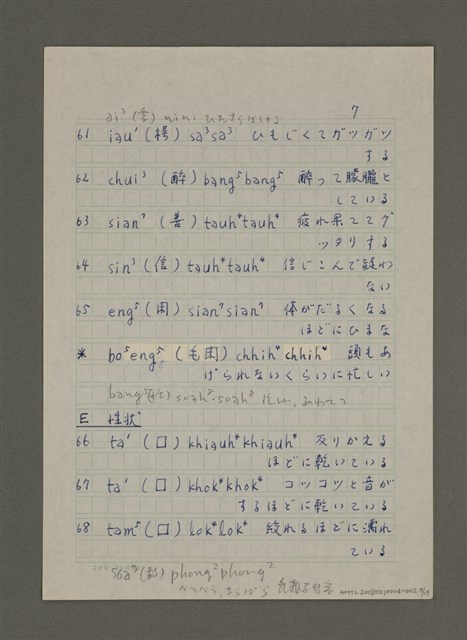 7
ai³ (愛) nini ひたすらほしがる
61 iau¹ (枵) sa³sa³ ひもじくてガツガツ
する
62 chui³ (酔) bang⁵bang⁵ 酔って朦朧と
している
63 sian⁷ (善) tauh⁴tauh⁴ 疲れ果ててグ
ッタリする
64 sin³ (信) tauh⁴tauh⁴ 信じこんで疑わ
ない
65 eng⁵ (閑) sian⁷sian⁷ 体がだるくなる
ほどにひまな
* bo⁵eng⁵ (毛閑) chhih⁴chhih⁴ 頭もあ
げられないくらいに忙しい
bang⁵ soah²-soah²
E 性状
66 ta¹ (口) khiauh⁴khiauh⁴ 反りかえる
ほどに乾いている
67 ta¹ (口) khok⁴khok⁴ コツコツと音が
するほどに乾いている
68 tam⁵ (口) lok⁴lok⁴ 絞れるほどに濡れ
ている
phong²phong²